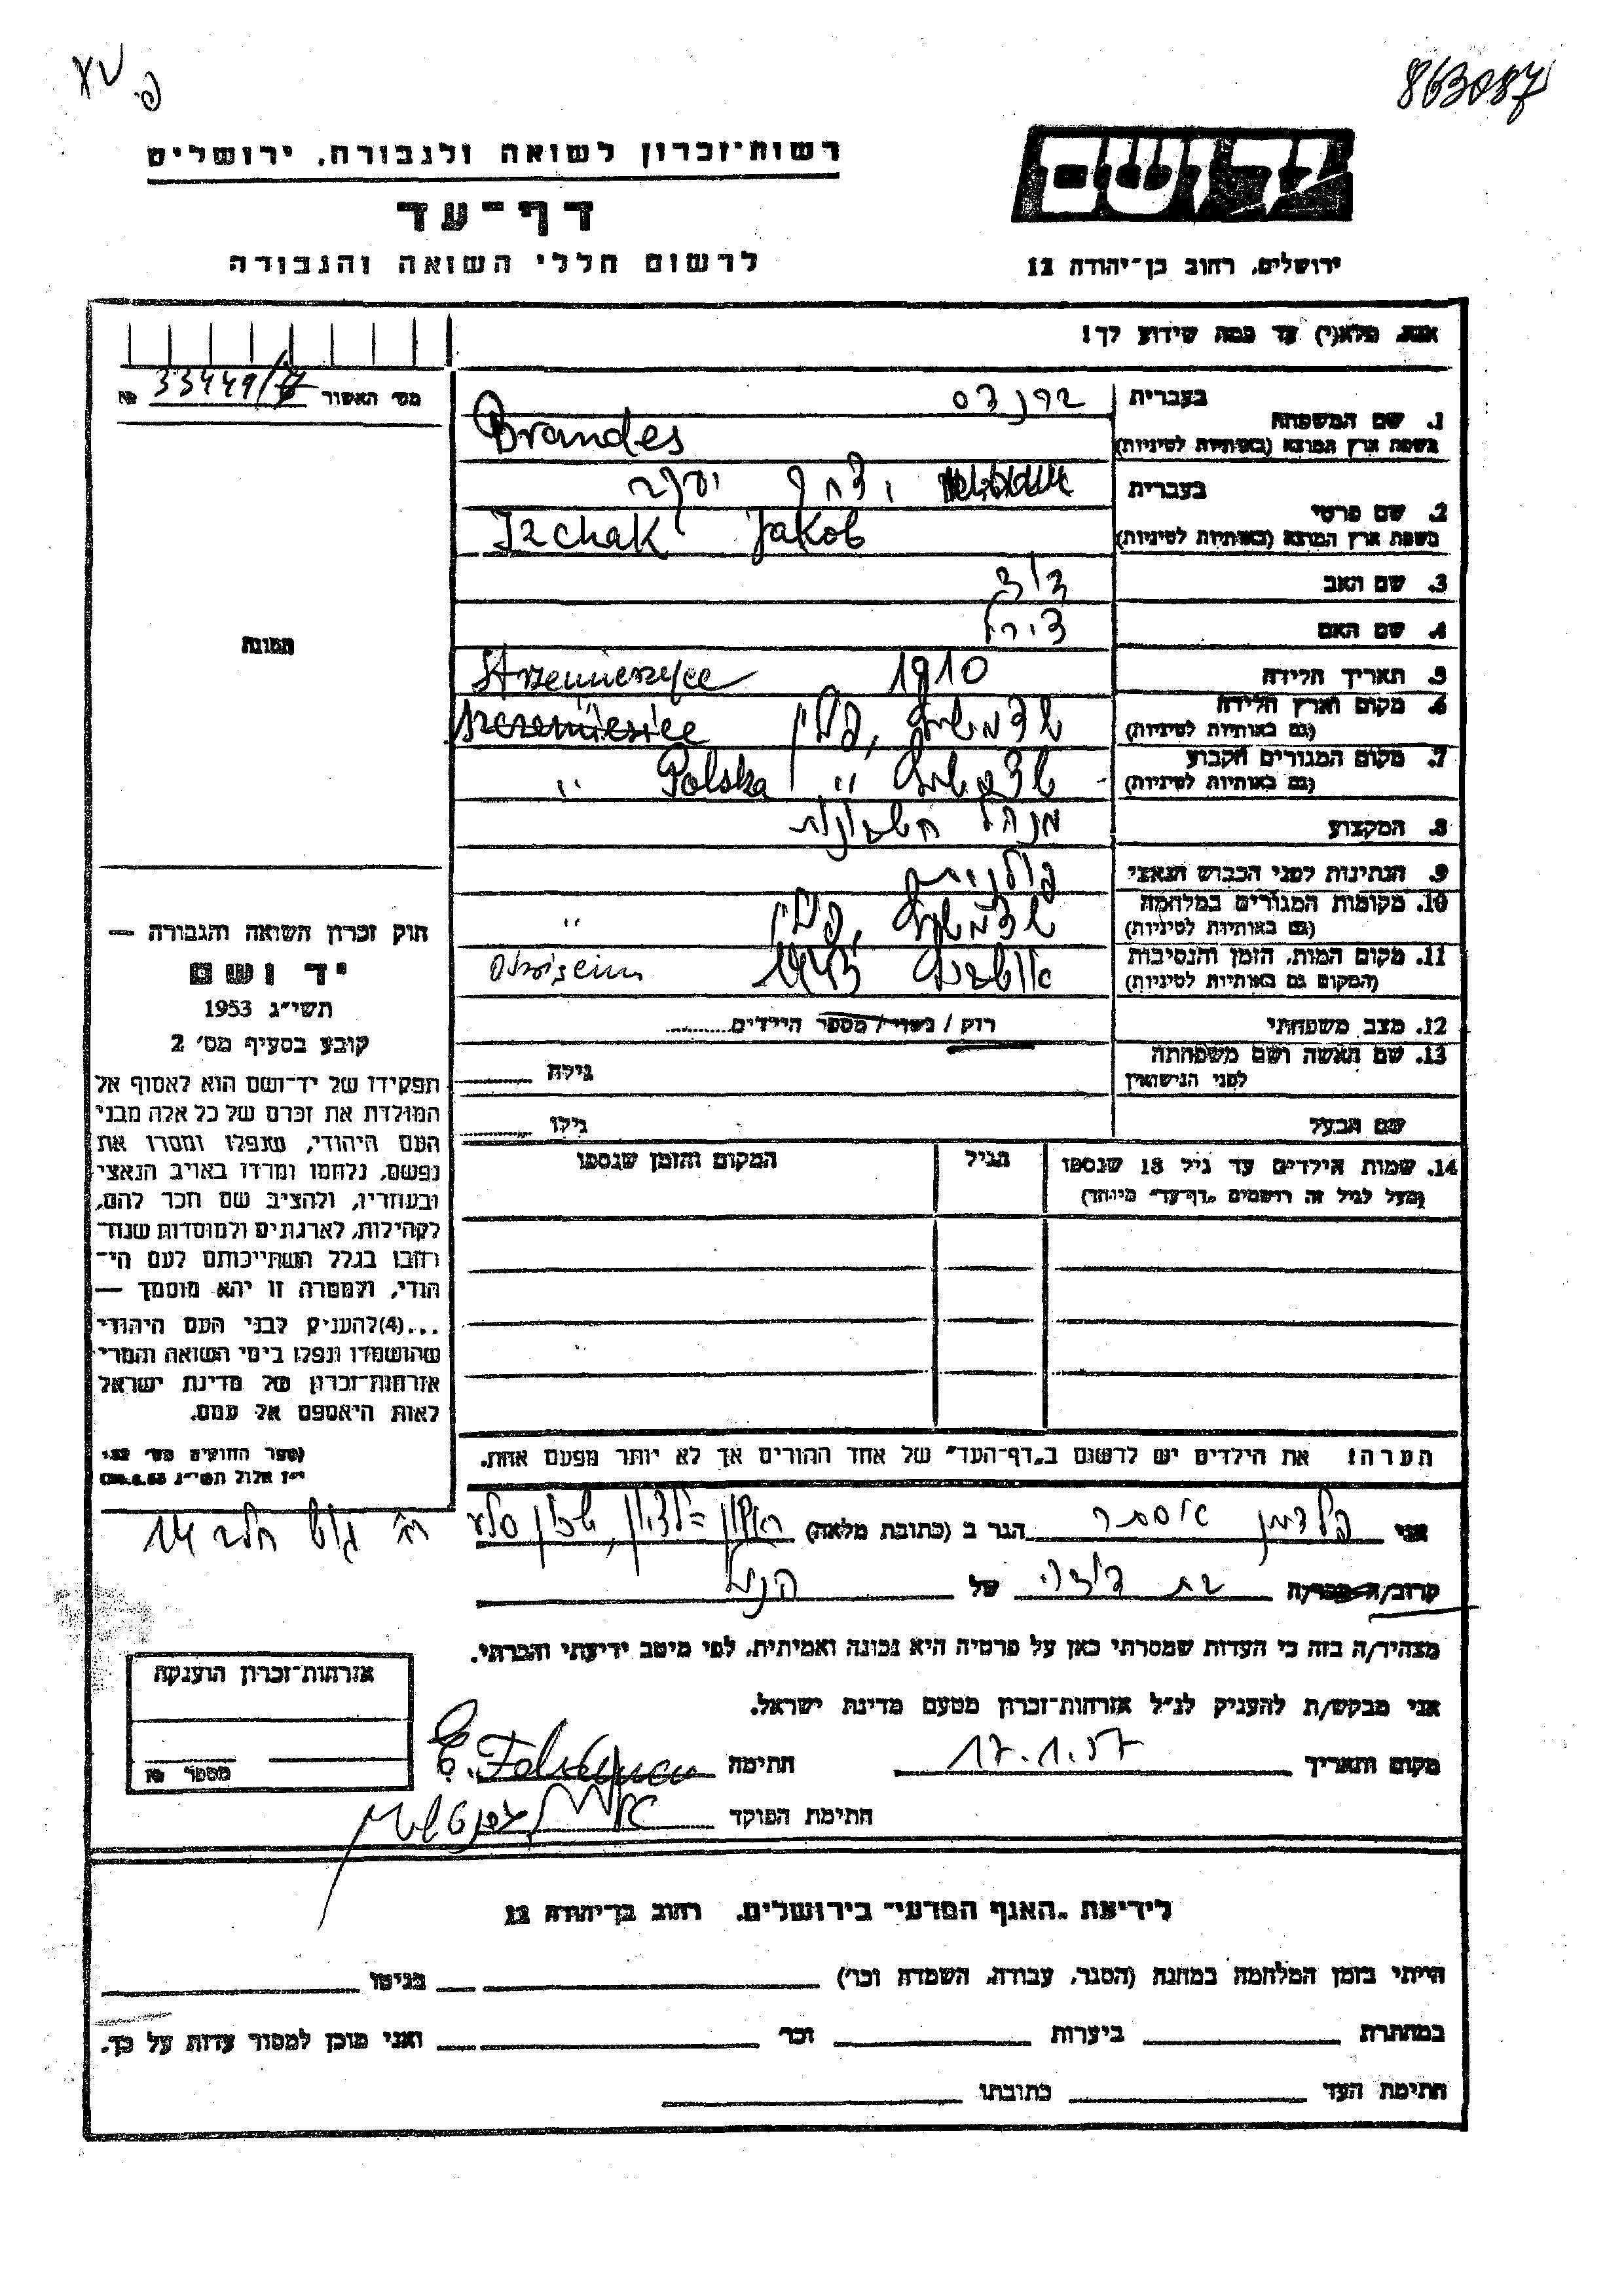 863087
רשות־זכרון לשואה ולגבורה, ירושלים
יד ושם
דף־עד
לרשום חללי השואה והגבורה
ירושלים, רחוב בן־יהודה 12
אנא, מלא(י) עד כמה שידוע לך!
מס׳ האשור 33449/ №
1. שם המשפחה
בעברית ברנדס
בשפת ארץ המוצא (באותיות לטיניות) Brandes
2. שם פרטי
בעברית יצחק יעקב
בשפת ארץ המוצא (באותיות לטיניות) Izchak Jakob
3. שם האב דוד
4. שם האם צירל
5. תאריך הלידה 1910 Strzemieszyce
6. מקום וארץ הלידה
(גם באותיות לטיניות) פולין
7. מקום המגורים הקבוע
(גם באותיות לטיניות) " Polska "
8. המקצוע מנהל חשבונות
9. הנתינות לפני הכבוש הנאצי פולנית
10. מקומות המגורים במלחמה
(גם באותיות לטיניות) פולין "
11. מקום המות, הזמן והנסיבות
(המקום גם באותיות לטיניות) 1943
12. מצב משפחתי רוק / נשוי / מספר הילדים
13. שם האשה ושם משפחתה
לפני הנישואין גילה
שם הבעל גילו
14. שמות הילדים עד גיל 18 שנספו הגיל המקום והזמן שנספו
(מעל לגיל זה רושמים „דף־עד״ מיוחד)
הערה! את הילדים יש לרשום ב„דף־העד״ של אחד ההורים אך לא יותר מפעם אחת.
תמונה
חוק זכרון השואה והגבורה —
יד ושם
תשי״ג 1953
קובע בסעיף מס׳ 2
תפקידו של יד־ושם הוא לאסוף אל
המולדת את זכרם של כל אלה מבני
העם היהודי, שנפלו ומסרו את
נפשם, נלחמו ומרדו באויב הנאצי
ובעוזריו, ולהציב שם וזכר להם,
לקהילות, לארגונים ולמוסדות שנח־
רבו בגלל השתייכותם לעם הי־
הודי, ולמטרה זו יהא מוסמך —
...(4) להעניק לבני העם היהודי
שהושמדו ונפלו בימי השואה והמרי
אזרחות־זכרון של מדינת ישראל
לאות היאספם אל עמם.
(ספר החוקים מס׳ 132
י״ז אלול תשי״ג 28.8.53)
אני פלדמן אסתר הגר ב (כתובת מלאה) ראשון לציון, שכון סלע רח׳ גוש חלב 14
קרוב/ה מכר/ה בת דודו של הנ״ל
מצהיר/ה בזה כי העדות שמסרתי כאן על פרטיה היא נכונה ואמיתית, לפי מיטב ידיעתי והכרתי.
אני מבקש/ת להעניק לנ״ל אזרחות־זכרון מטעם מדינת ישראל.
מקום ותאריך 17.1.57 חתימה
חתימת הפוקד
אזרחות־זכרון הוענקה
מספר №
לידיעת „האגף המדעי״ בירושלים, רחוב בן־יהודה 12
הייתי בזמן המלחמה במחנה (הסגר, עבודה, השמדה וכו׳) בגיטו
במחתרת ביערות וכו׳ ואני מוכן למסור עדות על כך.
חתימת העד כתובתו